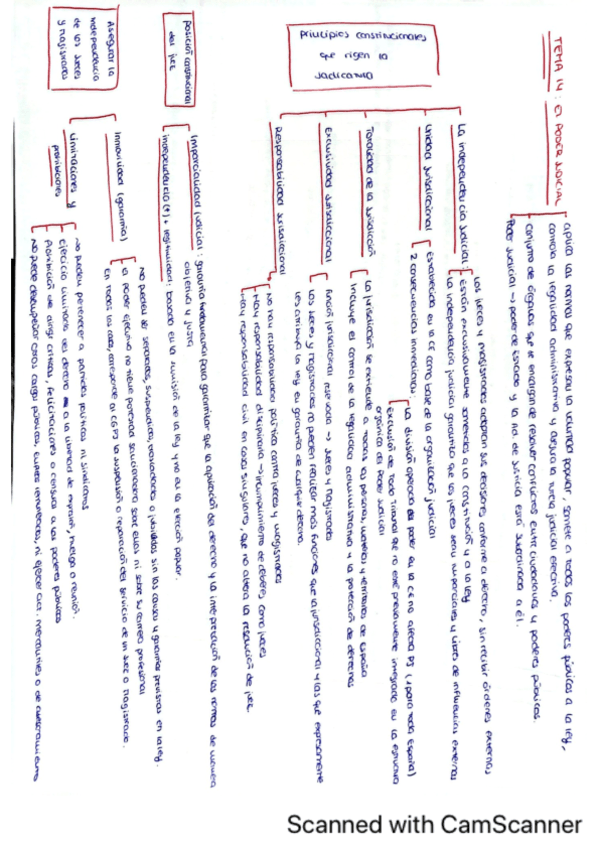 TEMA 14 El PODER JUDICIAL
aplica las normas que expresa la voluntad popular, somete a todos los poderes públicos a la ley,
controla la legalidad administrativa y asegura tutela judicial efectiva.
conjunto de órganos que se encargan de resolver conflictos entre ciudadanos y poderes públicos.
Poder Judicial → poder del Estado y la Ad. de Justicia está subordinada a él.
principios constitucionales
que rigen la
Judicatura
La independencia judicial:
Los jueces y magistrados adoptan sus decisiones conforme a derecho, sin recibir órdenes externas
Están exclusivamente sometidos a la constitución y a la ley
La independencia judicial garantiza que los jueces sean imparciales y libres de influencias externas
Unidad Jurisdiccional
Establecida en la CE como base de la organización judicial
2 consecuencias inmediatas:
La división operada del poder en la CE no afecta PJ (1 para toda España)
Exclusión de todo Tribunal que no esté previamente integrado en la estructura
orgánica del Poder Judicial
Totalidad de la Jurisdicción
La jurisdicción se extiende a todas las personas, materias y territorios de España
Incluye el control de la legalidad administrativa y la protección de derechos
Exclusividad Jurisdiccional
Función jurisdiccional reservada → Jueces y Magistrados
Los jueces y magistrados no pueden realizar más funciones que la jurisdiccional y las que expresamente
les atribuya la ley en garantía de cualquier derecho.
Responsabilidad Jurisdiccional
no hay responsabilidad política contra jueces y magistrados
Hay responsabilidad disciplinaria → incumplimiento de deberes como jueces
Hay responsabilidad civil en casos singulares, que no altera la resolución del juez.
posición constitucional
del juez
Imparcialidad (judicial): garantía fundamental para garantizar que la aplicación del derecho y la interpretación de las normas de manera
objetiva y justa
independencia (+) legitimidad: basada en la sumisión de la ley y no en la elección popular.
Asegurar la
independencia
de los Jueces
y magistrados
Inamovilidad (garantía)
no pueden ser separados, suspendidos, trasladados o jubilados sin las causas y garantías previstas en la ley.
La poder ejecutivo no tiene potestad sancionadora sobre ellos ni sobre su carrera profesional
En todos los casos, corresponde al CGPJ la suspensión o separación del servicio de un Juez o Magistrado.
Limitaciones y
prohibiciones
no pueden pertenecer a partidos políticos ni sindicatos
Ejercicio limitado del derecho a la libertad de expresión, huelga o reunión.
Prohibición de dirigir críticas, felicitaciones o censura a los poderes públicos
no puede desempeñar otros cargos públicos, empleos remunerados, ni ejercer act. mercantiles o de asesoramiento
Scanned with CamScanner